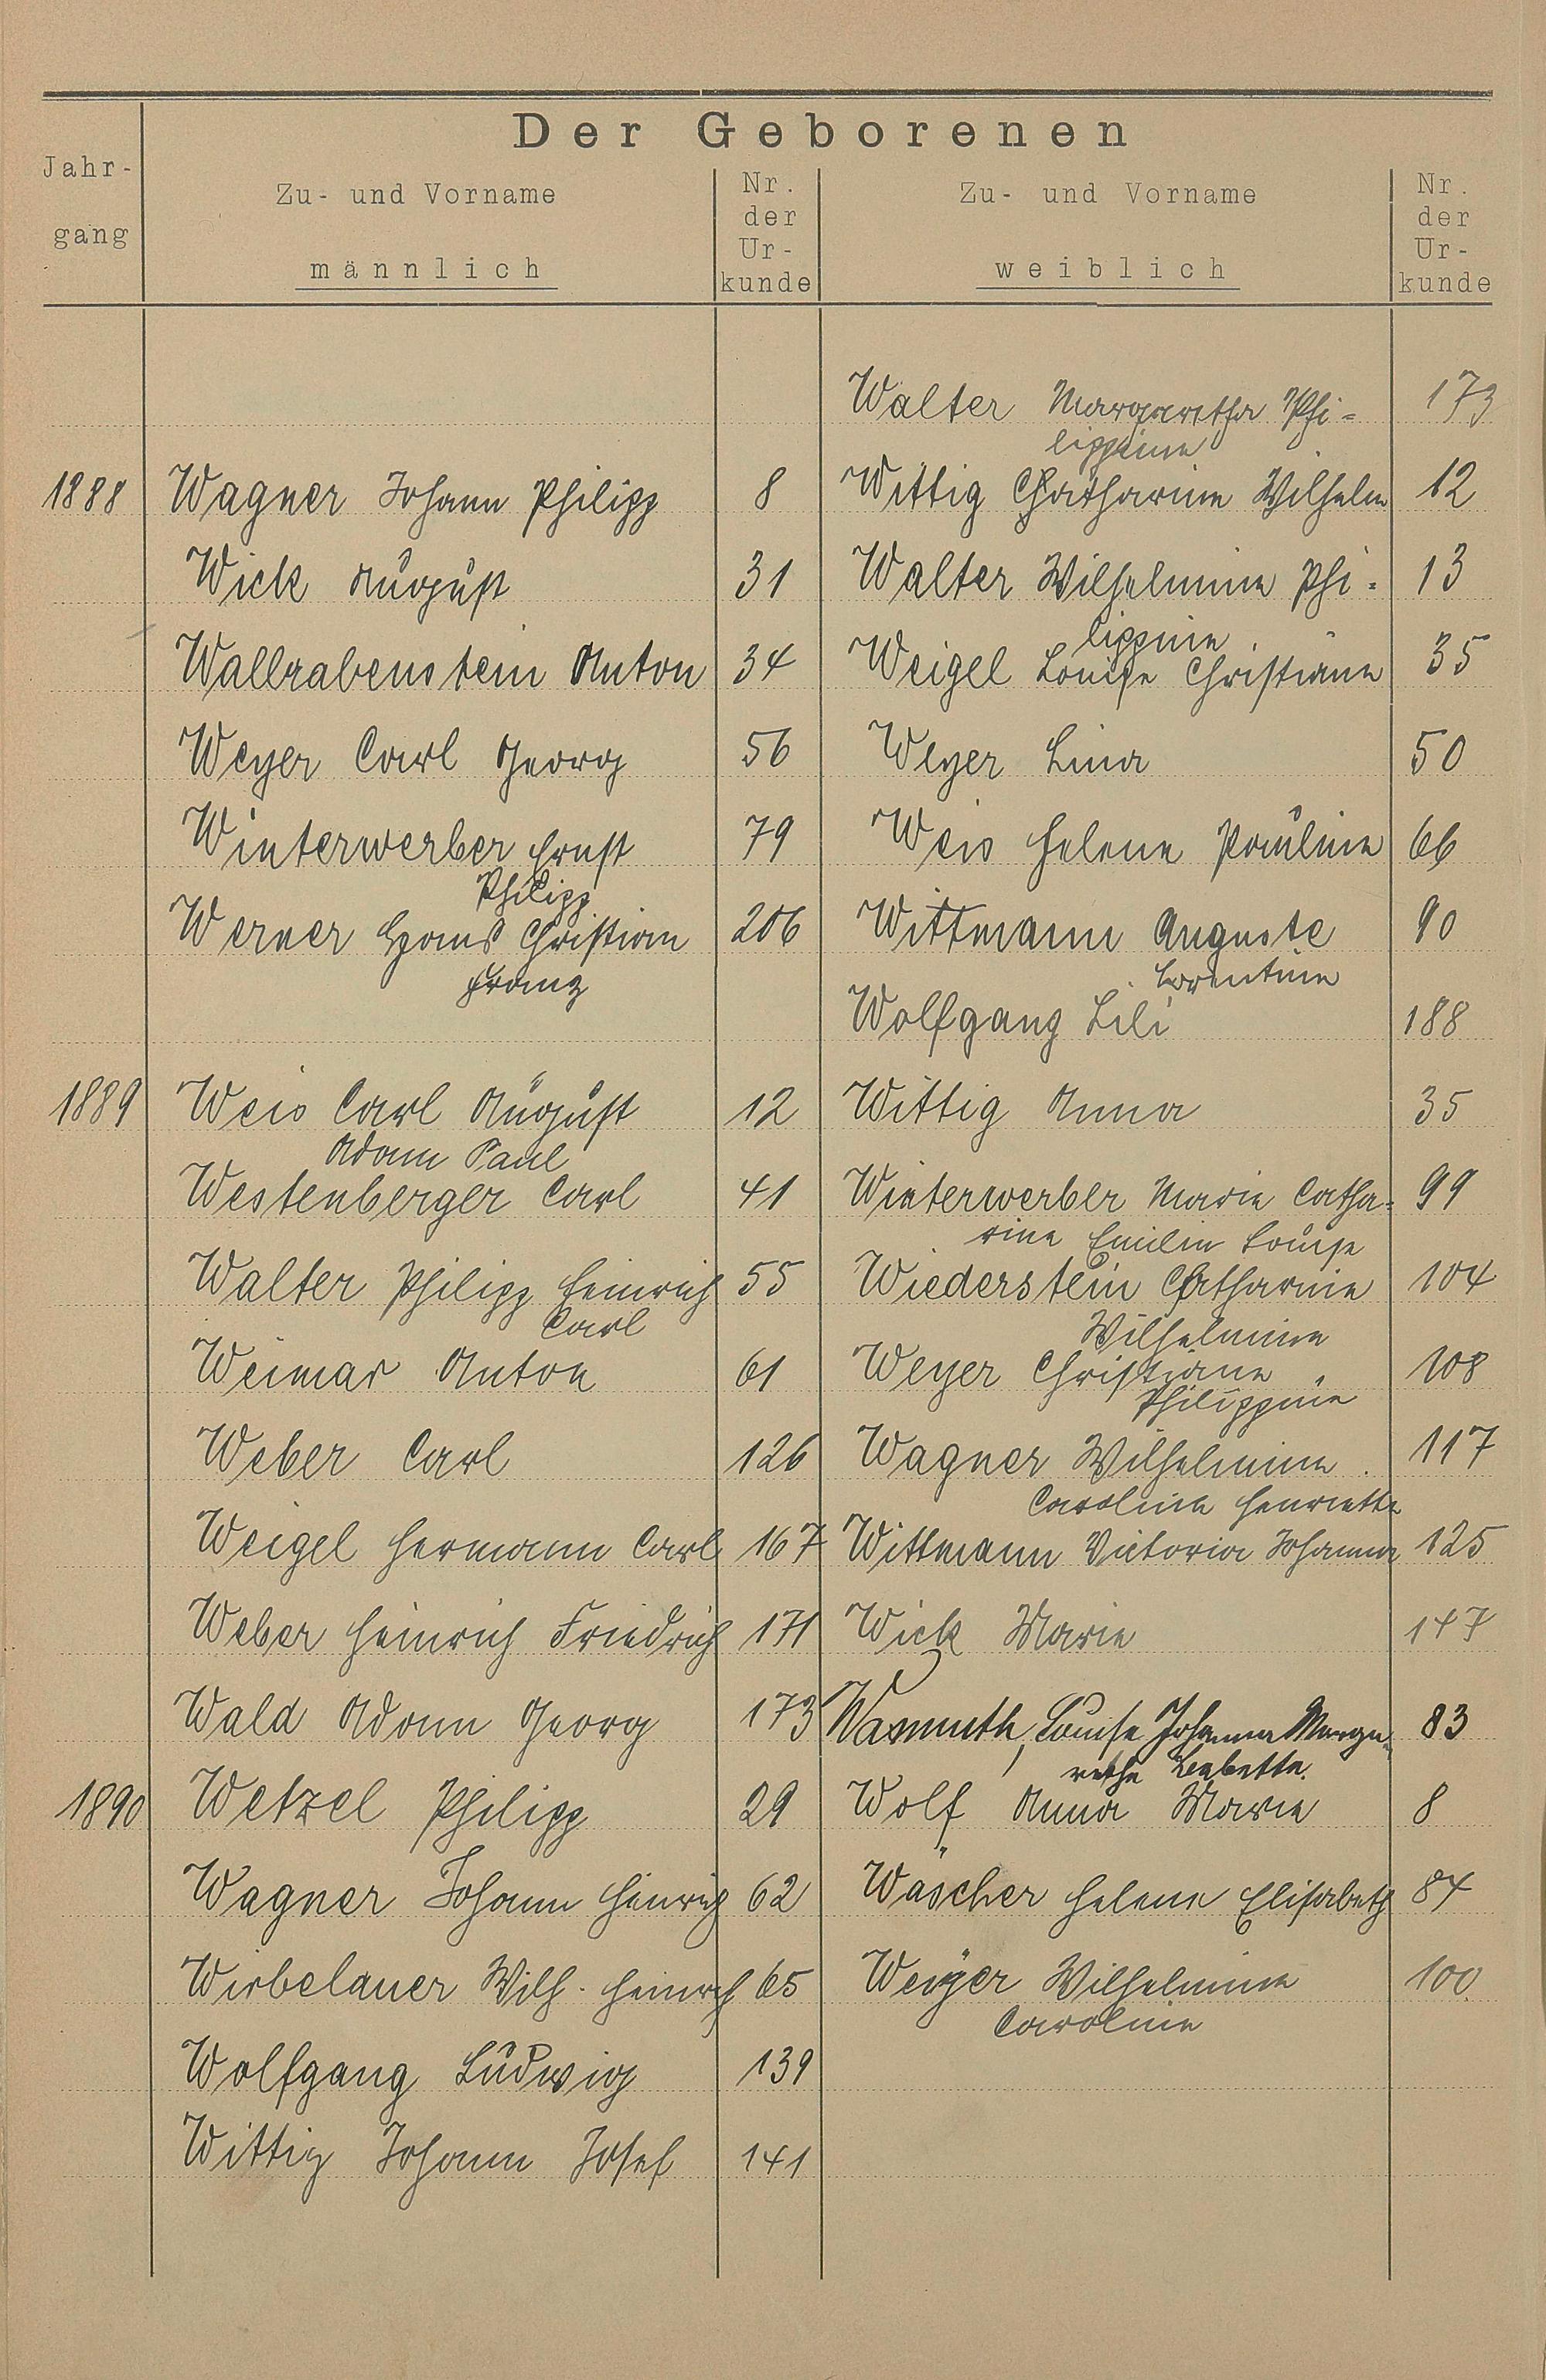 Der Geborenen
Jahr-
gang
Zu- und Vorname
männlich
Nr.
der
Ur-
kunde
Zu- und Vorname
weiblich
Nr.
der
Ur-
kunde
Walter Margaretha Phi= 173
lippine
1888 Wagner Johann Philipp 8 Wittig Chatharine Wilhelm 12
Wick August 31 Walter Wilhelmine Phi= 13
lippine
Wallrabenstein Anton 34 Weigel Louise Christiane 35
Weyer Carl Georg 56 Weyer Lina 50
Winterwerber Ernst 79 Weis Helene Pauline 66
Philipp
Werner Hans Christian 206 Wittmann Auguste 90
Franz Lorentine
Wolfgang Lili 188
1889 Weis Carl August 12 Wittig Anna 35
Adam Paul
Westenberger Carl 41 Winterwerber Marie Catha= 99
rine Emilie Louise
Walter Philipp Heinrich 55 Wiederstein Chatharine 104
Carl Wilhelmine
Weimar Anton 61 Weyer Christiane 108
Philippine
Weber Carl 126 Wagner Wilhelmine 117
Caroline Henriette
Weigel Hermann Carl 167 Wittmann Victoria Johanna 125
Weber Heinrich Friedrich 171 Wick Marie 147
Wald Adam Georg 173 Wasmuth, Louise Johanna Marga= 83
rethe Babette.
1890 Wetzel Philipp 29 Wolf Anna Marie 8
Wagner Johann Heinrich 62 Wäscher Helene Elisabeth 84
Wirbelauer Wilh. Heinrich 65 Weyer Wilhelmine 100
Caroline
Wolfgang Ludwig 139
Wittig Johann Josef 141